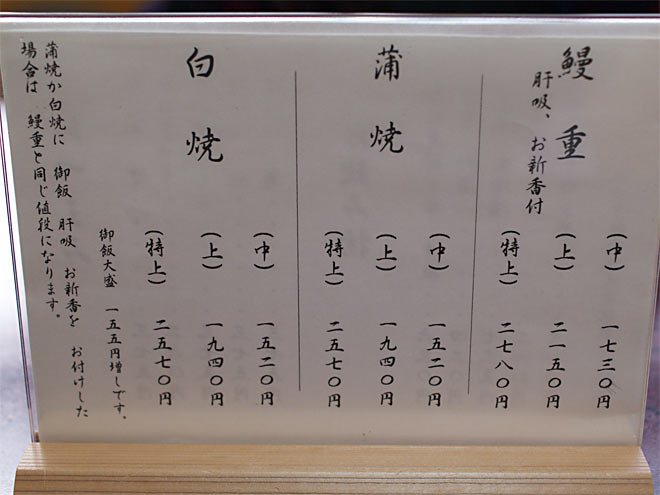 鰻重
肝吸、お新香付
(中) 一七三〇円
(上) 二一五〇円
(特上) 二七八〇円
蒲焼
(中) 一五二〇円
(上) 一九四〇円
(特上) 二五七〇円
白焼
(中) 一五二〇円
(上) 一九四〇円
(特上) 二五七〇円
御飯大盛 一五五円増しです。
蒲焼か白焼に 御飯 肝吸 お新香を お付けした
場合は 鰻重と同じ値段になります。